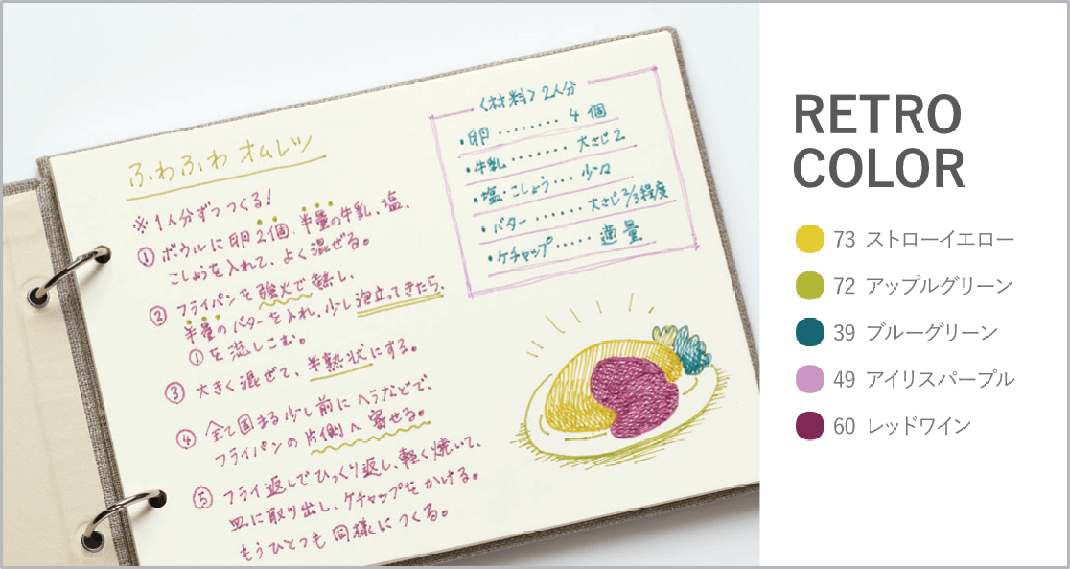 ふわふわ オムレツ
※1人分ずつつくる!
① ボウルに卵2個、半量の牛乳、塩、
こしょうを入れて、よく混ぜる。
② フライパンを強火で熱し、
半量のバターを入れ、少し泡立ってきたら、
①を流しこむ。
③ 大きく混ぜて、半熟状にする。
④ 全て固まる少し前にヘラなどで、
フライパンの片側へ寄せる。
⑤ フライ返しでひっくり返し、軽く焼いて、
皿に取り出し、ケチャップをかける。
もうひとつも同様につくる。
〈材料〉2人分
・卵………4個
・牛乳………大さじ2
・塩・こしょう…少々
・バター……大さじ2/3程度
・ケチャップ……適量
RETRO
COLOR
73 ストローイエロー
72 アップルグリーン
39 ブルーグリーン
49 アイリスパープル
60 レッドワイン